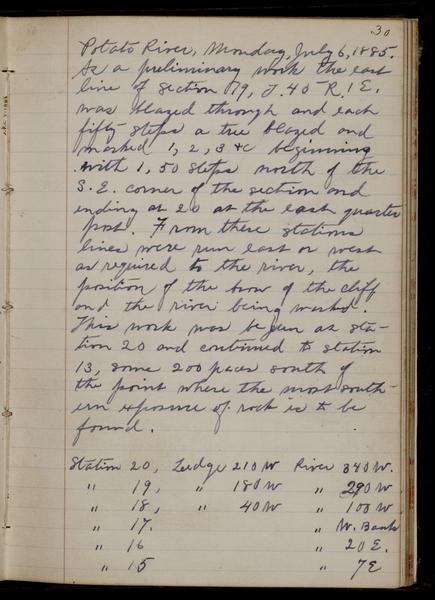 30
Potato River, Monday, July 6, 1885.
As a preliminary work the east
line of section 19, T. 45 R. 1 E.
was blazed through and each
fifty steps a tree blazed and
marked 1, 2, 3 &c beginning
with 1, 50 steps north of the
S. E. corner of the section and
ending at 20 at the east quarter
post. From these stations
lines were run east or west
as required to the river, the
position of the brow of the cliff
and the river being marked.
This work was begun at sta-
tion 20 and continued to station
13, some 200 paces south of
the point where the most south-
ern exposure of rock is to be
found.
Station 20, Ledge 210 W River 340 W.
" 19, " 180 W " 290 W
" 18, " 40 W " 100 W
" 17. " W. Bank
" 16 " 20 E.
" 15 " 7 E